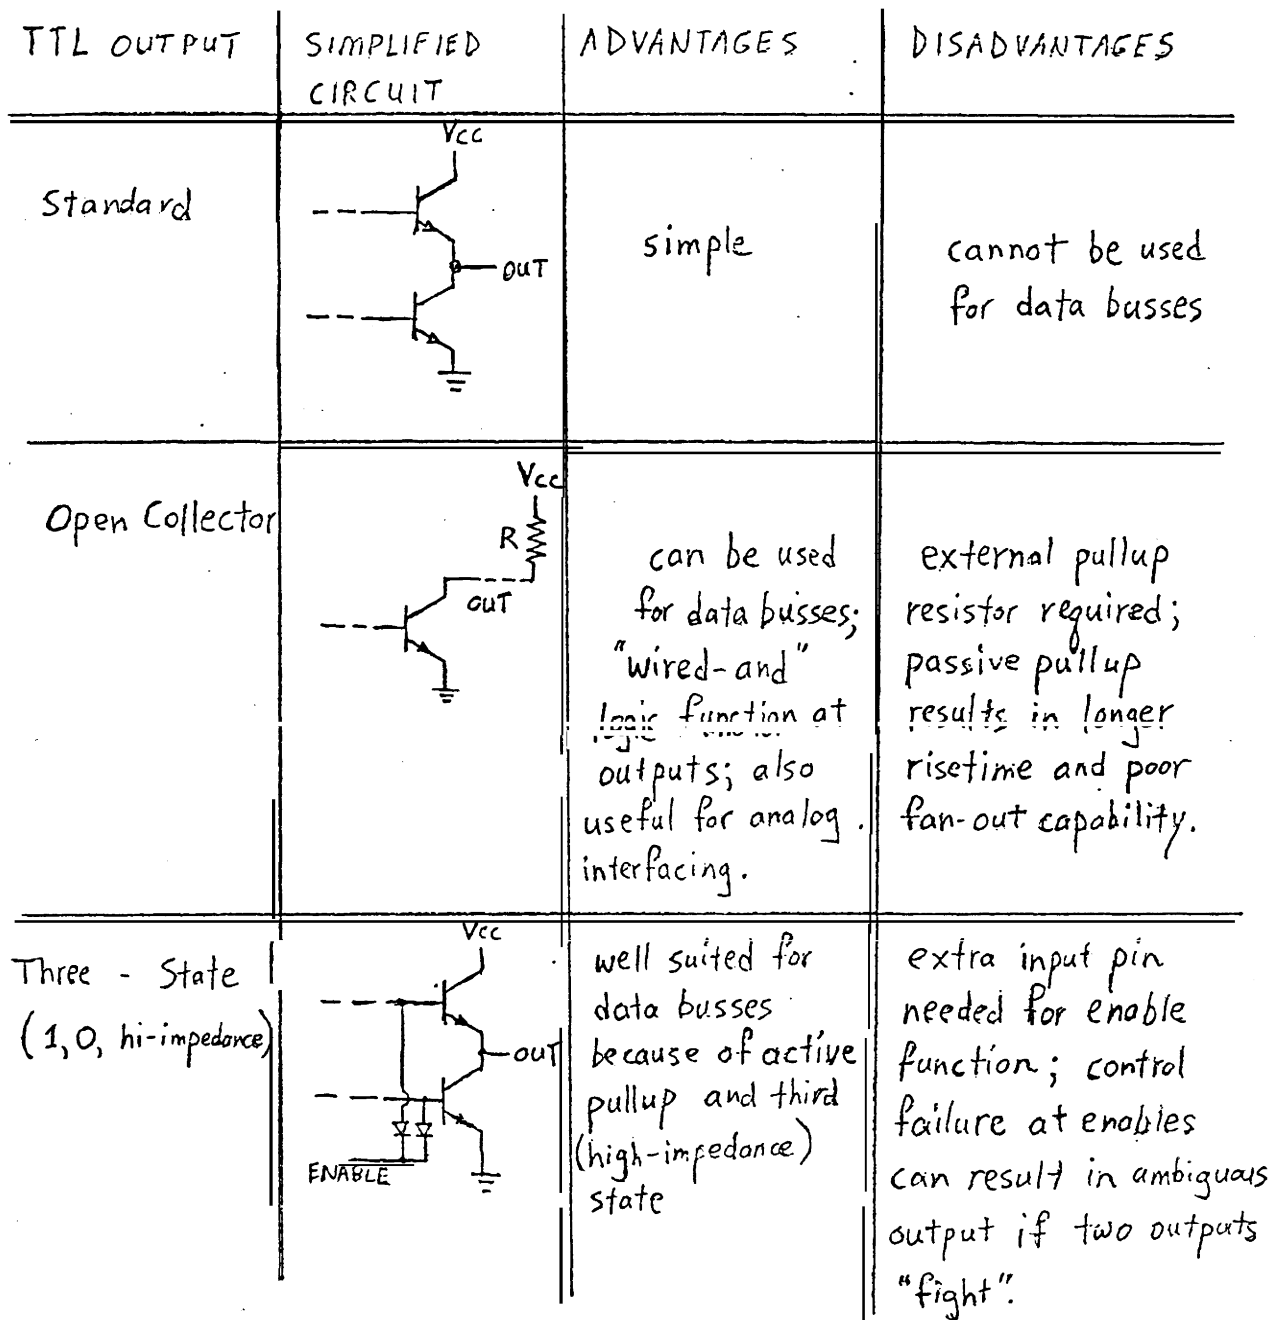 TTL OUTPUT
SIMPLIFIED
CIRCUIT
ADVANTAGES
DISADVANTAGES
Standard
Vcc
OUT
simple
cannot be used
for data busses
Open Collector
Vcc
R
OUT
can be used
for data busses;
"wired-and"
logic function at
outputs; also
useful for analog
interfacing.
external pullup
resistor required;
passive pullup
results in longer
risetime and poor
fan-out capability.
Three - State
(1,0, hi-impedance)
Vcc
OUT
ENABLE
well suited for
data busses
because of active
pullup and third
(high-impedance)
state
extra input pin
needed for enable
function; control
failure at enables
can result in ambiguous
output if two outputs
"fight".